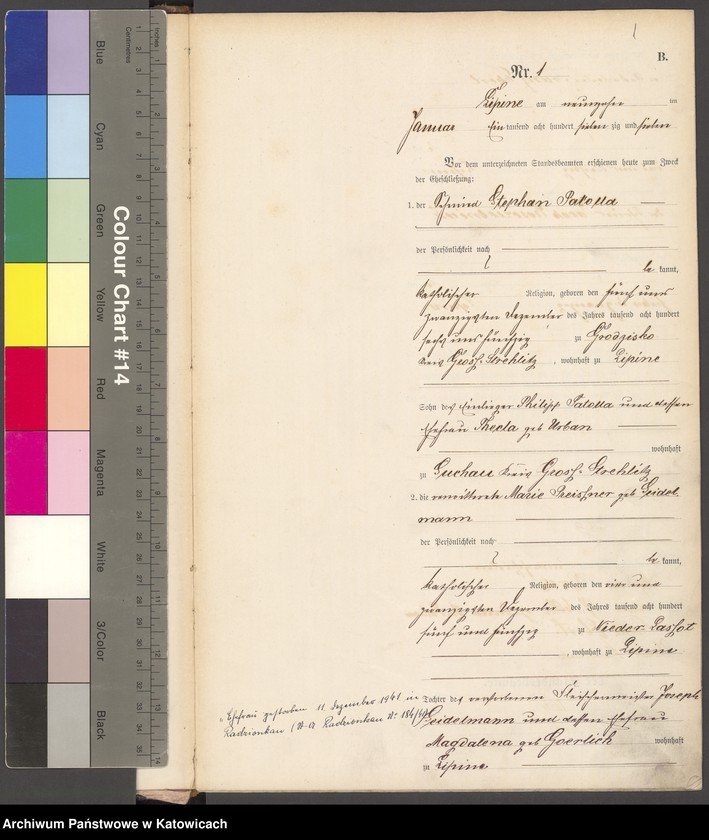 Blue
Cyan
Green
Yellow
Red
Magenta
White
3/Color
Black
Colour Chart #14
Centimetres
Inches
B.
Nr. 1
Lipine am neunzehn ten
Januar Ein tausend acht hundert sieben zig und sieben
Vor dem unterzeichneten Standesbeamten erschienen heute zum Zweck
der Eheschließung:
1. der Schmied Stephan Palotta
der Persönlichkeit nach
be kannt,
katholischer Religion, geboren den fünf und
zwanzigsten Dezember des Jahres tausend acht hundert
sechs und fünfzig zu Grodzisko
Kreis Groß-Strehlitz, wohnhaft zu Lipine
Sohn des Einlieger Philipp Palotta und dessen
Ehefrau Thecla geb Urban
wohnhaft
zu Suchau Kreis Groß-Strehlitz
2. die verwittwete Marie Preißner geb Seidel
mann
der Persönlichkeit nach
be kannt,
katholischer Religion, geboren den vier und
zwanzigsten Dezember des Jahres tausend acht hundert
fünf und fünfzig zu Nieder
, wohnhaft zu Lipine
Tochter des verstorbenen Fleischermeister Joseph
Seidelmann und dessen Ehefrau
Magdalena geb Goerlich wohnhaft
zu Lipine
Ehefrau gestorben 11. Dezember 1941 in
Radzionkau (St. A Radzionkau Nr.
Archiwum Państwowe w Katowicach